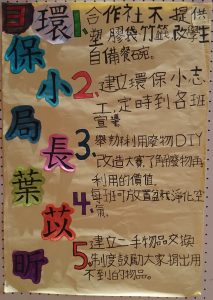 自環
保小局長
葉苡昕
1.合作社不提供
塑膠袋竹筷改學生
自備餐石碗。
2.建立環保小志
工,定時到各班
宣導
3.舉辦利用廢物DIY
改造大賽了解廢物再
利用的價值。
4.每班可放置盆栽淨化空
氣。
5.建立二手物品交換
制度鼓勵大家捐出用
不到的物品。